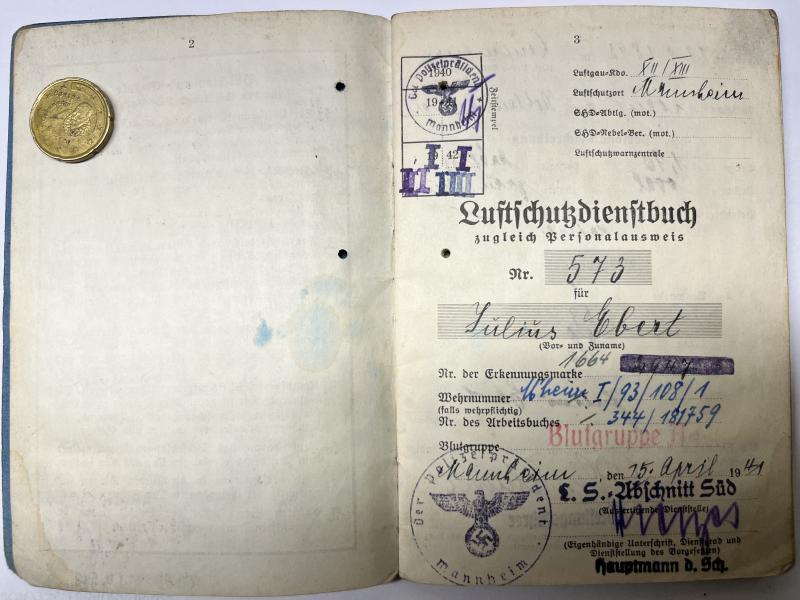 2
3
Der Polizeipräsident
Mannheim
1940
19
1942
I I
II IIII
Zeitstempel
Luftgau-Kdo. XII/XIII
Luftschutzort Mannheim
SHD-Abtlg. (mot.)
SHD-Nebel-Ber. (mot.)
Luftschutzwarnzentrale
Luftschutzdienstbuch
zugleich Personalausweis
Nr. 573
für
Julius Ebert
(Vor- und Zuname)
1664
Nr. der Erkennungsmarke
Wehrnummer Mheim I/93/108/1
(falls wehrpflichtig)
Nr. des Arbeitsbuches 344/181759
Blutgruppe Blutgruppe
Mannheim, den 15. April 1941
L. S.-Abschnitt Süd
(Ausfertigende Dienststelle)
(Eigenhändige Unterschrift, Dienstgrad und
Dienststellung des Vorgesetzten)
Hauptmann d. Sch.
Der Polizeipräsident
Mannheim